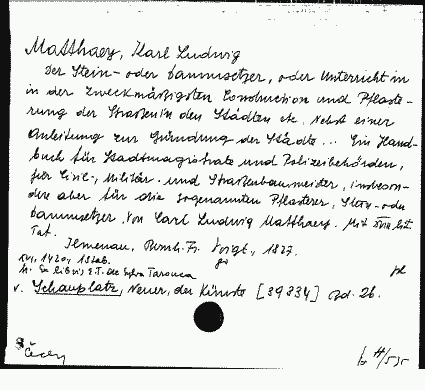 Matthaey, Karl Ludwig
Der Stein- oder Dammsetzer, oder Unterricht in
in der zweckmäßigsten Construction und Pflaste-
rung der Straßen in den Städten etc. Nebst einer
Anleitung zur Gründung der Städte ... Ein Hand-
buch für Stadtmagistrate und Polizeibehörden,
für Civil-, Militär- und Straßenbaumeister, insbeson-
dere aber für die sogenannten Pflasterer, Stein- oder
Dammsetzer. Von Carl Ludwig Matthaey. Mit XVII lit.
Taf.
Ilmenau, Bernh. Fr. Voigt, 1827.
8°
XVI, 142
Ex libris E.T. de Sylva Tarouca
v. Schauplatz, Neuer, der Künste [39334] Bd. 26.